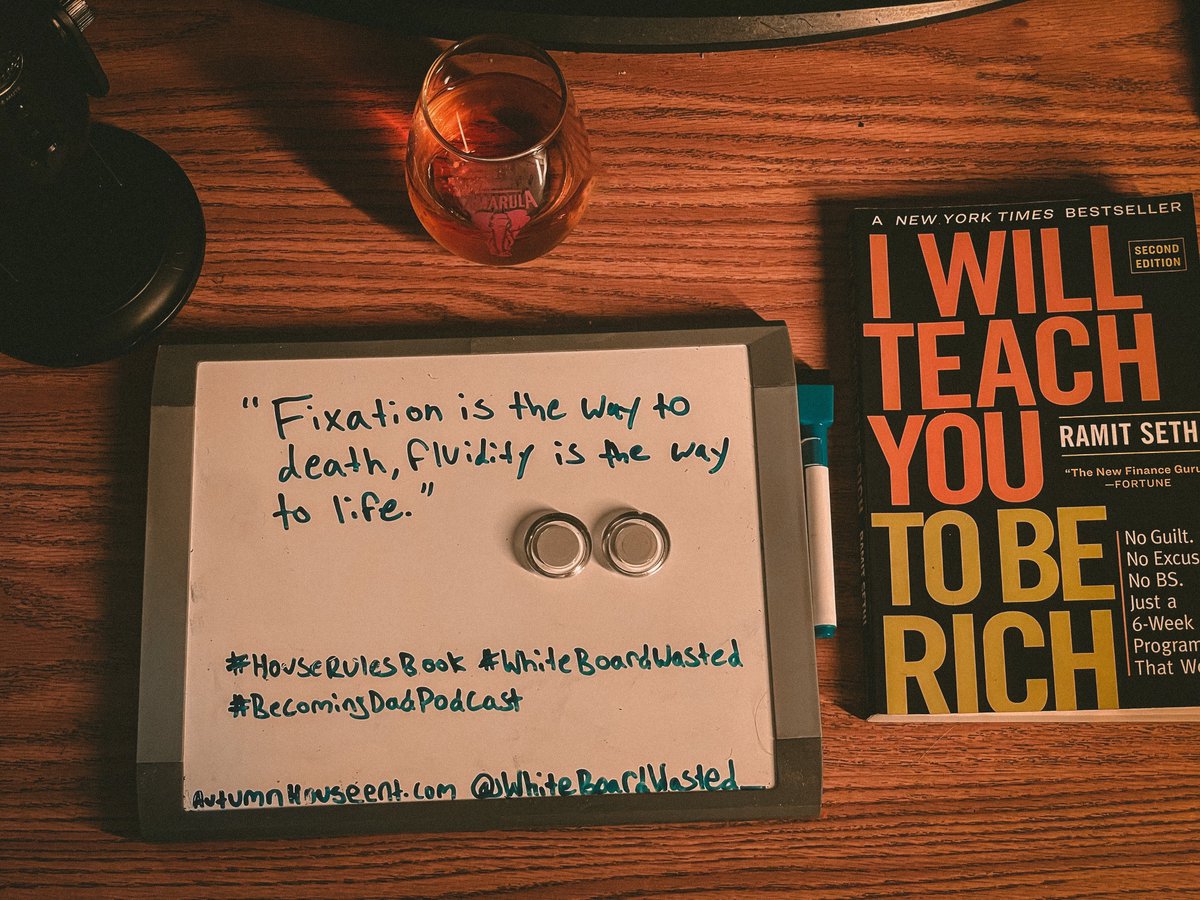 AMARULA
"Fixation is the way to
death, fluidity is the way
to life."
#HouseRulesBook #WhiteBoardWasted
#BecomingDadPodcast
AutumnHouseent.com @WhiteBoardWasted
A NEW YORK TIMES BESTSELLER
I WILL
TEACH
YOU
TO BE
RICH
SECOND
EDITION
RAMIT SETH
"The New Finance Guru
—FORTUNE
No Guilt.
No Excus
No BS.
Just a
6-Week
Program
That Wo